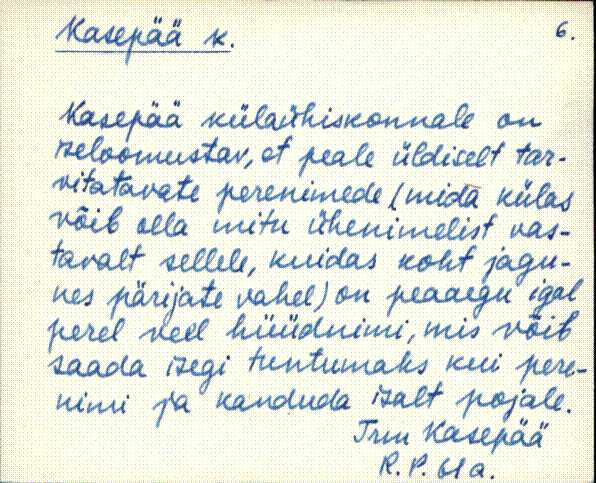 Kasepää k.
6.
Kasepää külaühiskonnale on
iseloomustav, et peale üldiselt tar-
vitatavate perenimede (mida külas
võib olla mitu ühenimelist vas-
tavalt sellele, kuidas koht jagu-
nes pärijate vahel) on peaaegu igal
perel veel hüüdnimi, mis võib
saada isegi tuntumaks kui pere-
nimi ja kanduda isalt pojale.
Trm Kasepää
R. P. 61 a.